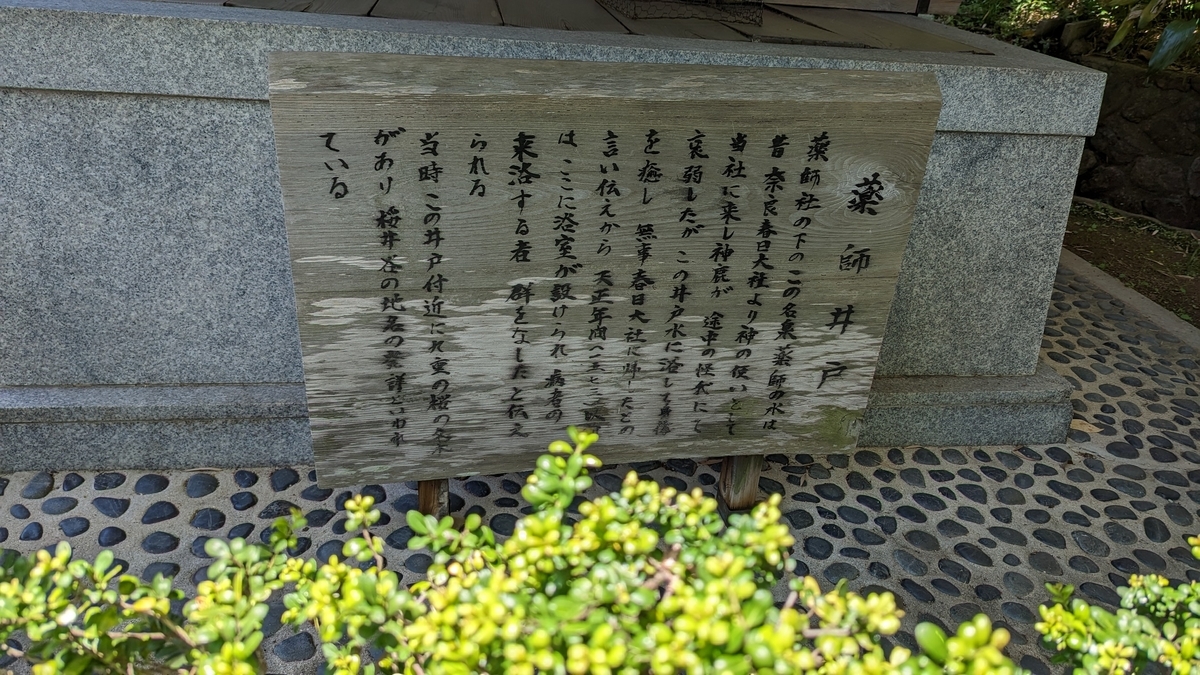 薬師井戸
薬師社の下の この名泉薬師の水は
昔 奈良春日大社より神の使いとして
当社に来し神鹿が 途中の怪我にて
衰弱したが この井戸水に浴し
を癒し 無事春日大社に帰したとの
言い伝えから 天正年間
は ここに浴室が設けられ 病者の
来浴する者 群をなしたと伝え
られる
当時 この井戸付近に九重の桜の老
があり 桜井谷の地名の発祥といわれ
ている